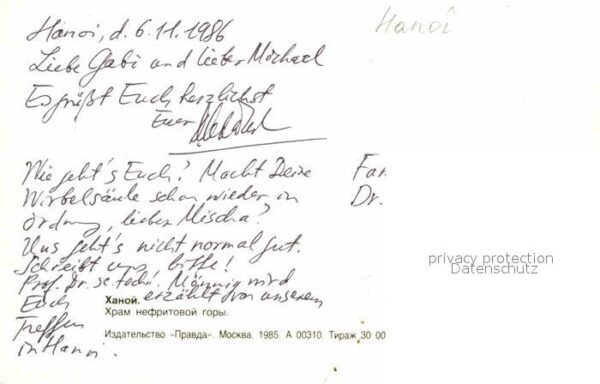 Hanoi, d. 6.11.1986
Hanoi
Liebe Gabi und lieber Michael
Es grüßt Euch herzlichst
Euer
Wie geht's Euch? Macht Deine
Wirbelsäule schon wieder in
Ordnung, lieber Mischa?
Uns geht's nicht normal gut.
Schreibt uns, bitte!
Prof. Dr. sc. techn. Männig wird
Euch erzählt von unserem
Treffen
in Hanoi.
Fam
Dr.
privacy protection
Datenschutz
Ханой.
Храм нефритовой горы.
Издательство «Правда». Москва. 1985. А 00310. Тираж 30 00